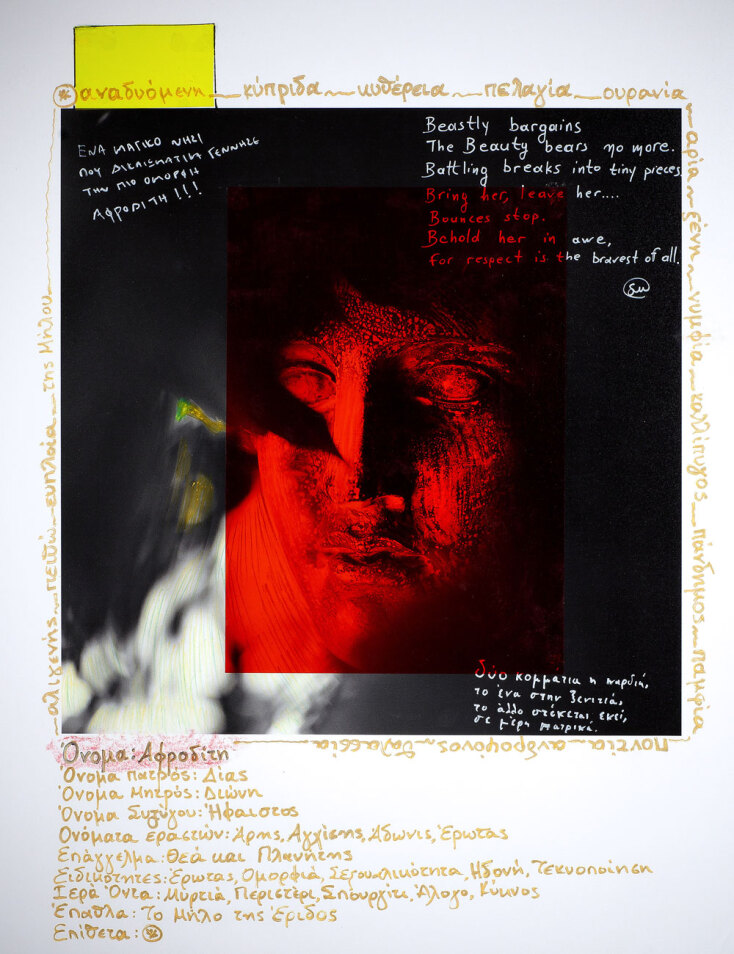 * αναδυόμενη _ κύπριδα _ κυθέρεια _ πελαγία _ ουρανία
αρία _ ξένη _ νυμφία _ καλλίπυγος _ πάνδημος _ παμφία
ποντία _ ανδροφόνος _ θαλασσία
αλιγενής _ πειθώ _ ευπλοία _ της Μήλου
ΕΝΑ ΜΑΓΙΚΟ ΝΗΣΙ
ΠΟΥ ΔΙΚΑΙΩΜΑΤΙΚΑ ΓΕΝΝΗΣΕ
ΤΗΝ ΠΙΟ ΟΜΟΡΦΗ
ΑΦΡΟΔΙΤΗ!!!
Beastly bargains
The Beauty bears no more.
Battling breaks into tiny pieces
Bring her, leave her....
Bounces stop.
Behold her in awe,
for respect is the bravest of all.
δύο κομμάτια η καρδιά,
το ένα στην ξενιτιά,
το άλλο στέκεται εκεί,
σε μέρη πατρικά.
Όνομα: Αφροδίτη
Όνομα Πατρός: Δίας
Όνομα Μητρός: Διώνη
Όνομα Συζύγου: Ήφαιστος
Ονόματα εραστών: Άρης, Αγχίσης, Άδωνις, Έρωτας
Επάγγελμα: Θεά και Πλανήτης
Ειδικότητες: Έρωτας, Ομορφιά, Σεξουαλικότητα, Ηδονή, Τεκνοποίηση
Ιερά Όντα: Μυρτιά, Περιστέρι, Σπουργίτι, Άλογο, Κύκνος
Έπαθλα: Το Μήλο της Έριδος
Επίθετα: *